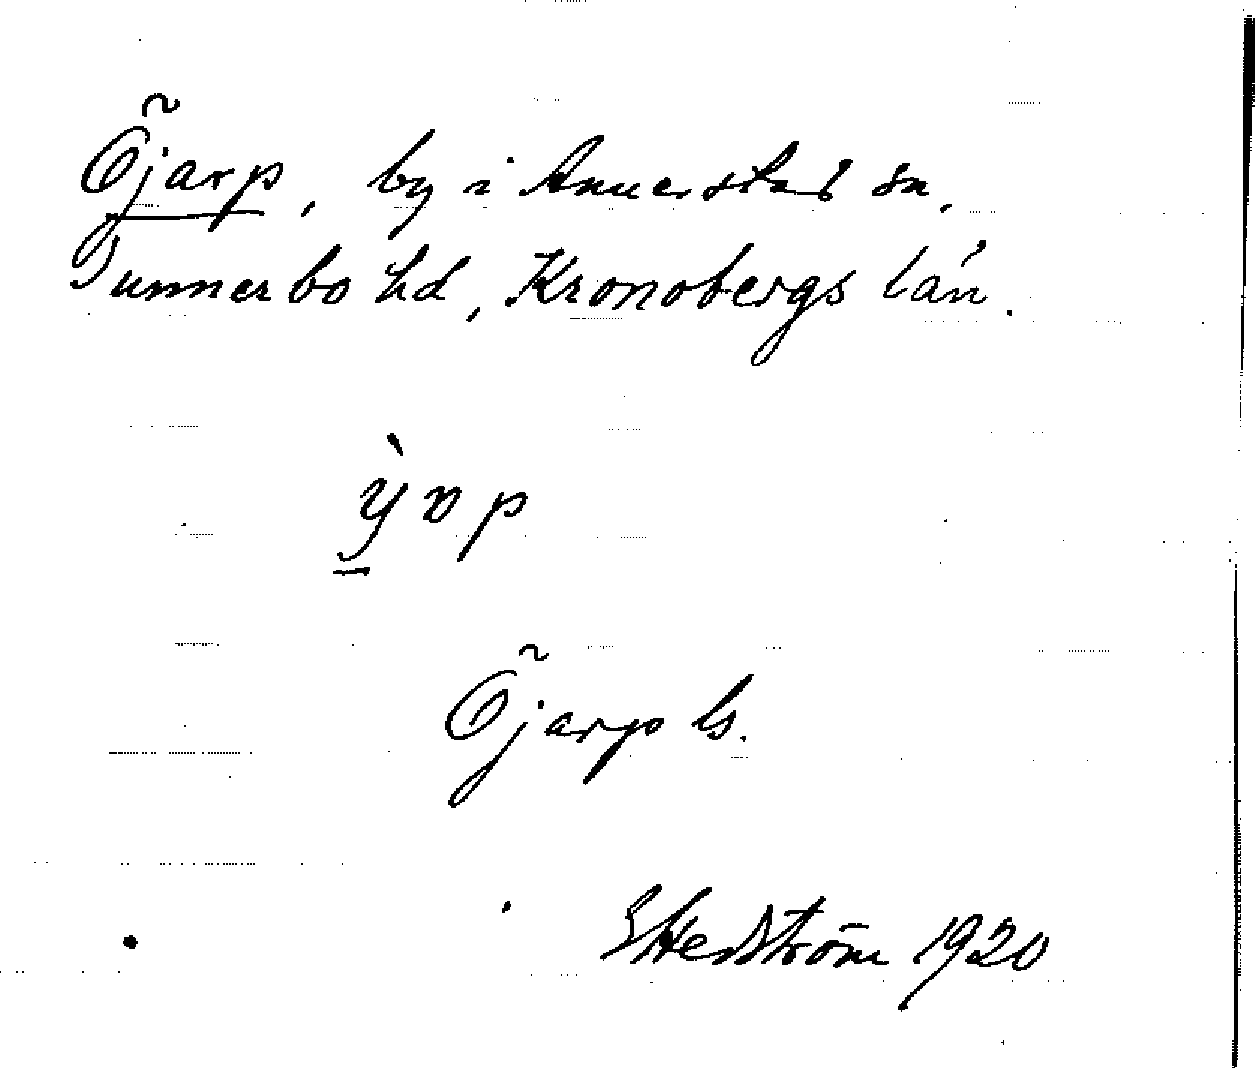 Öjarp, by i Annerstad sn,
Sunnerbo hd, Kronobergs län.
ỳvp
Öjarp ls.
E Hedström 1920